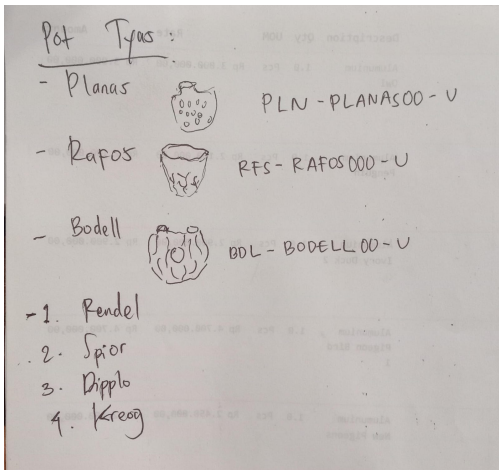 Pot Tyas:
- Planas PLN - PLANAS00 - U
- Rafos RFS - RAFOS000 - U
- Bodell BDL - BODELL00 - U
- 1. Rendel
2. Spior
3. Dipplo
4. Kreog